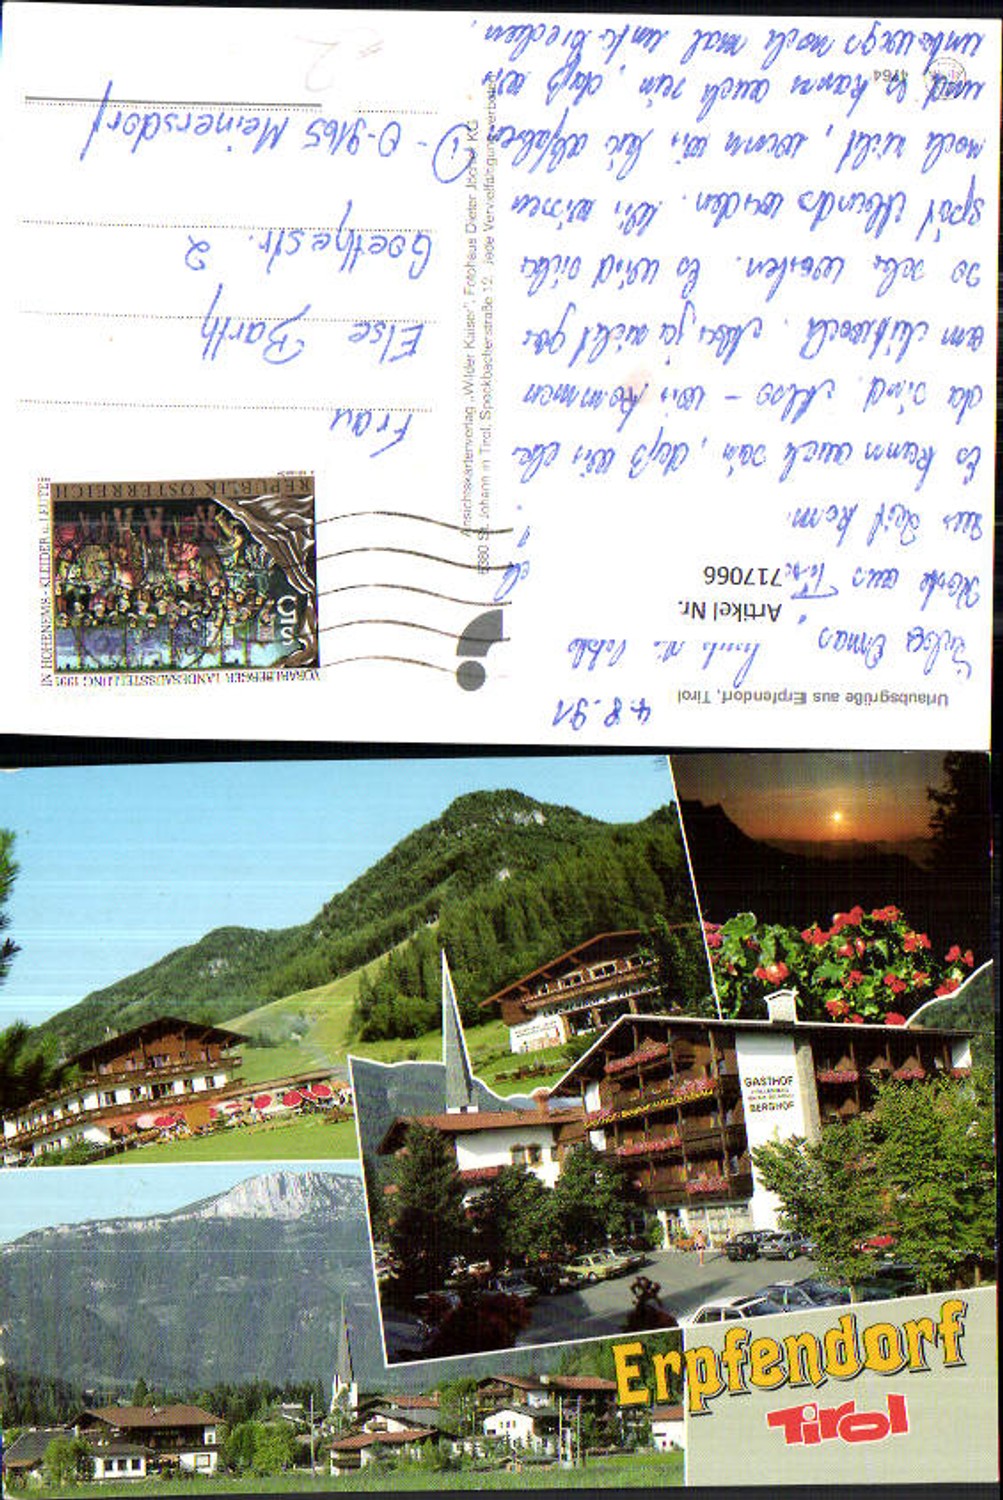 Urlaubsgrüße aus Erpfendorf, Tirol
4.8.91
Liebe Omas,
Karte aus Tirol
zur Zeit kam.
Es kann auch sein, daß wir eher
da sind. Also - wir kommen
am Mittwoch. Aber ja nicht gar
so sehr warten. Es wird sicher
spät abends werden. Wir wissen
noch nicht, wann wir hier abfahren
und es kann auch sein, daß wir
unterwegs noch mal
Artikel Nr.
717066
4764
Ansichtskartenverlag „Wilder Kaiser“, Fotohaus Dieter Jöchler KG
6380 St. Johann in Tirol, Speckbacherstraße 12. Jede Vervielfältigung verboten
VORARLBERGER LANDESAUSSTELLUNG 1991
IN HOHENEMS - KLEIDER u. LEUTE
REPUBLIK ÖSTERREICH
5S
Frau
Else Barth
Goethestr. 2
D-9165 Meinersdorf
GASTHOF
BERGHOF
Erpfendorf
Tirol